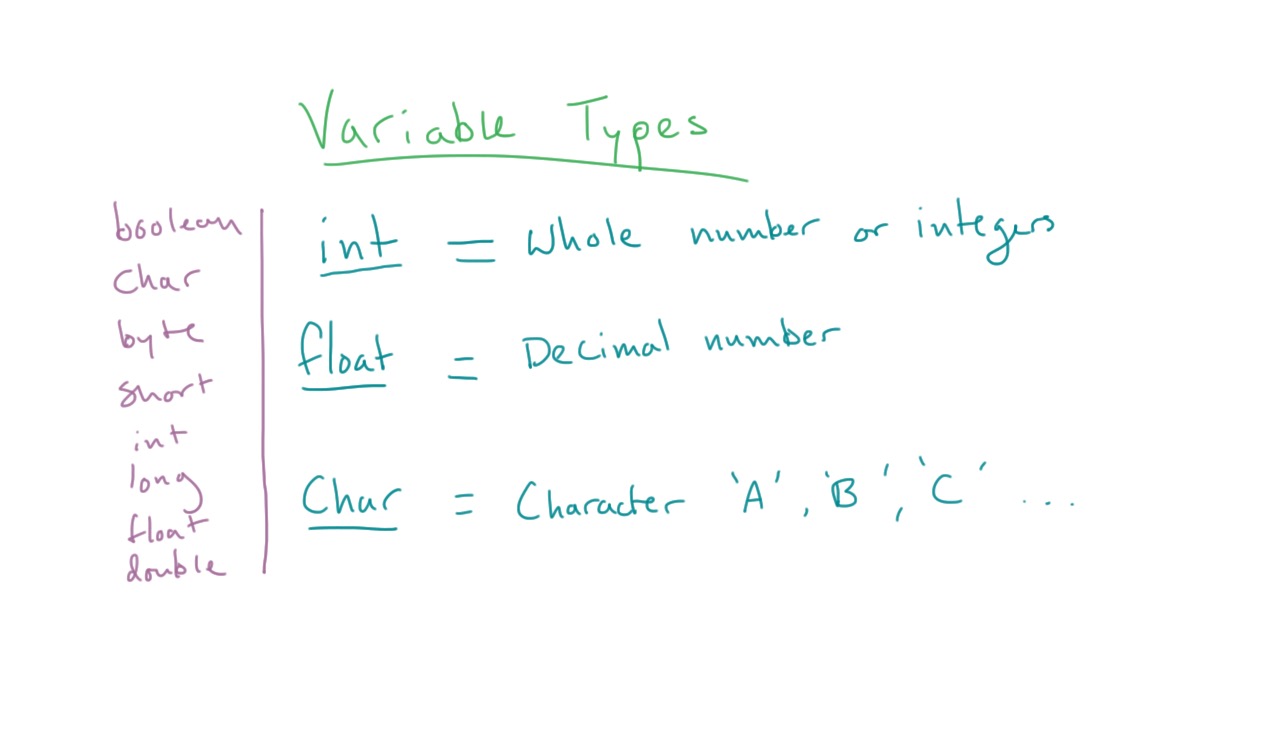 Variable Types
boolean
Char
byte
short
int
long
float
double
int = Whole number or integers
float = Decimal number
Char = Character 'A', 'B', 'C' ...